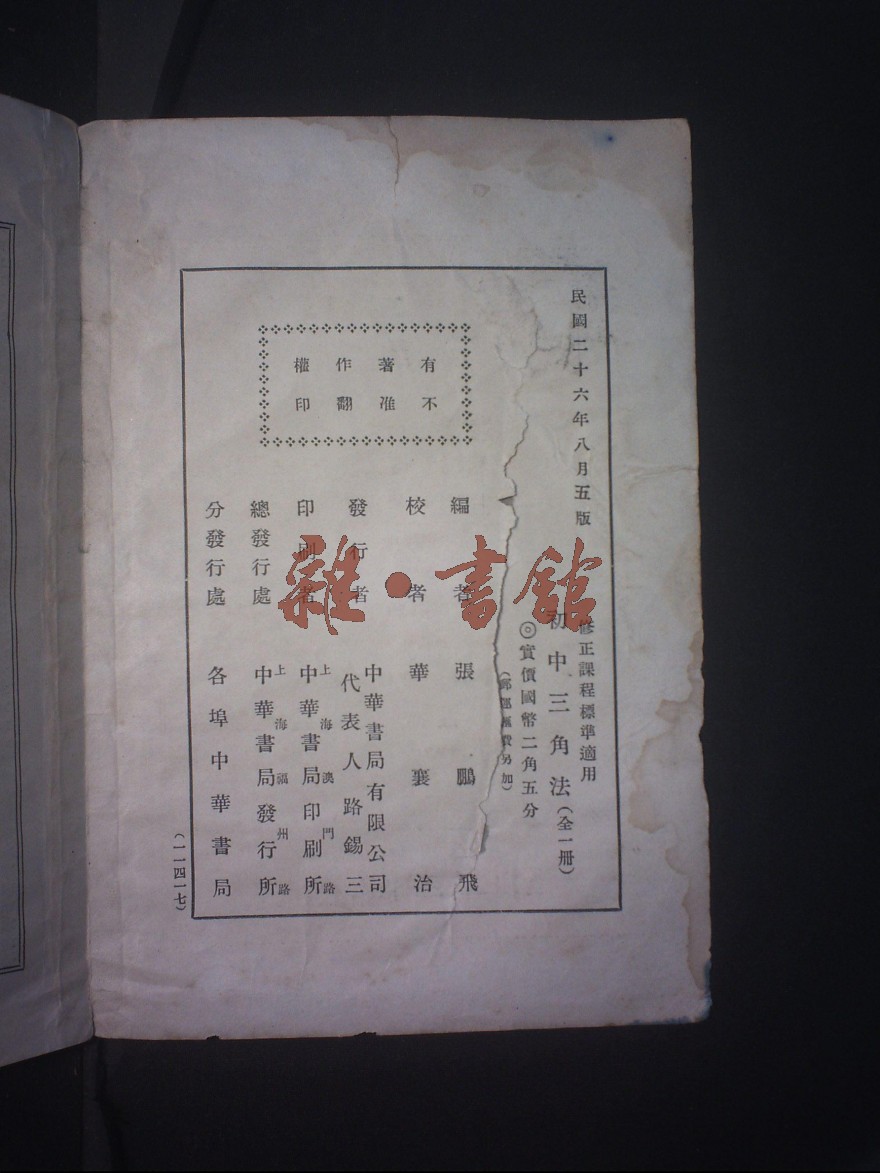 民國二十六年八月五版
修正課程標準適用
初中三角法(全一册)
◎實價國幣二角五分
(郵運匯費另加)
有著作權
不准翻印
編者 張鵬飛
校者 華襄治
發行者 中華書局有限公司
代表人路錫三
印刷者 上海澳門路
中華書局印刷所
總發行處 上海福州路
中華書局發行所
分發行處 各埠中華書局
(一一四一七)
雜·書館